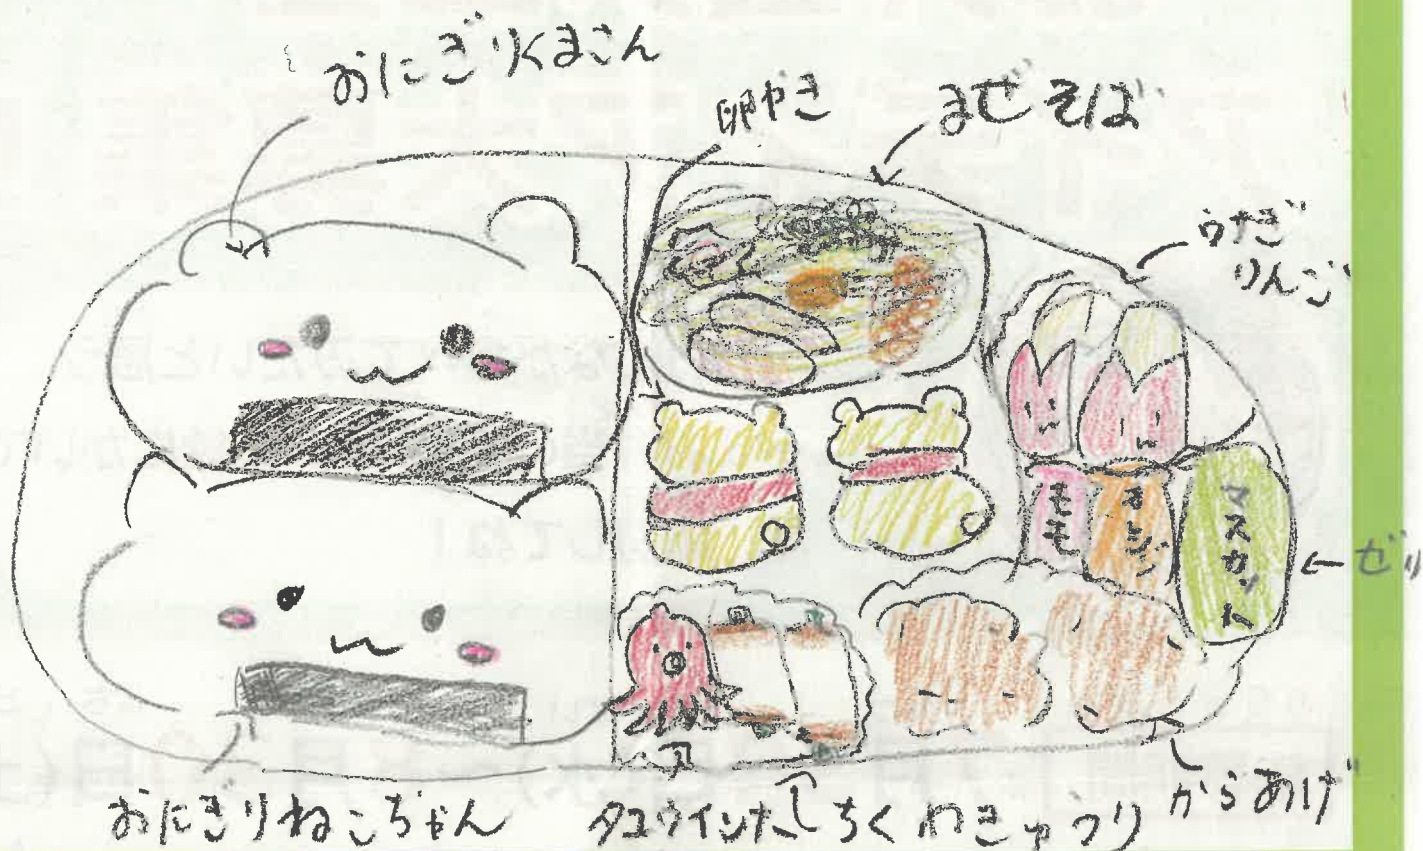 おにぎりくまさん
卵やき
まぜそば
うさぎ
りんご
モモ
オレンジ
マスカット
ゼリ
おにぎりねこちゃん
タコウインナー
ちくわきゅうり
からあげ